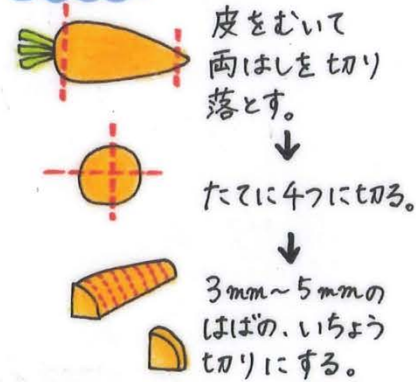 皮をむいて
両はしを切り
落とす。
↓
たてに4つに切る。
↓
3mm～5mmの
はばの、いちょう
切りにする。